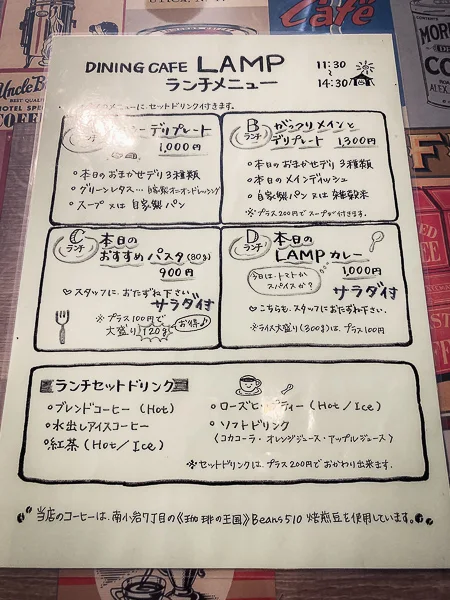 DINING CAFE LAMP
ランチメニュー
11:30
~
14:30
メニューに、セットドリンク付きます。
ランチ
デリプレート
1,000円
・本日のおまかせデリ 3種類
・グリーンレタス… 自家製オニオンドレッシング
・スープ 又は 自家製パン
B
ランチ
がっつりメインと
デリプレート 1,300円
・本日のおまかせデリ 3種類
・本日のメインディッシュ
・自家製パン 又は 雑穀米
※プラス200円でスープが付きます。
C
ランチ
本日の
おすすめパスタ(80g)
900円
♡スタッフに、おたずね下さい。
サラダ付
※プラス100円で
大盛り 120g
お得♪
D
ランチ
本日の
LAMPカレー
今日は、トマトか
スパイスか?
1,000円
サラダ付
♡こちらも、スタッフにおたずね下さい。
※ライス大盛り(300g)は、プラス100円
ランチセットドリンク
・ブレンドコーヒー (Hot)
・水出しアイスコーヒー
・紅茶 (Hot/Ice)
・ローズヒップティー (Hot/Ice)
・ソフトドリンク
(コカコーラ・オレンジジュース・アップルジュース)
※セットドリンクは、プラス200円でおかわり出来ます。
当店のコーヒーは、南小岩7丁目の《珈琲の王国》Beans510 焙煎豆を使用しています。
Uncle B
BEST QUALITY
HOTEL SPE
COFFEE
Cafe
MOR